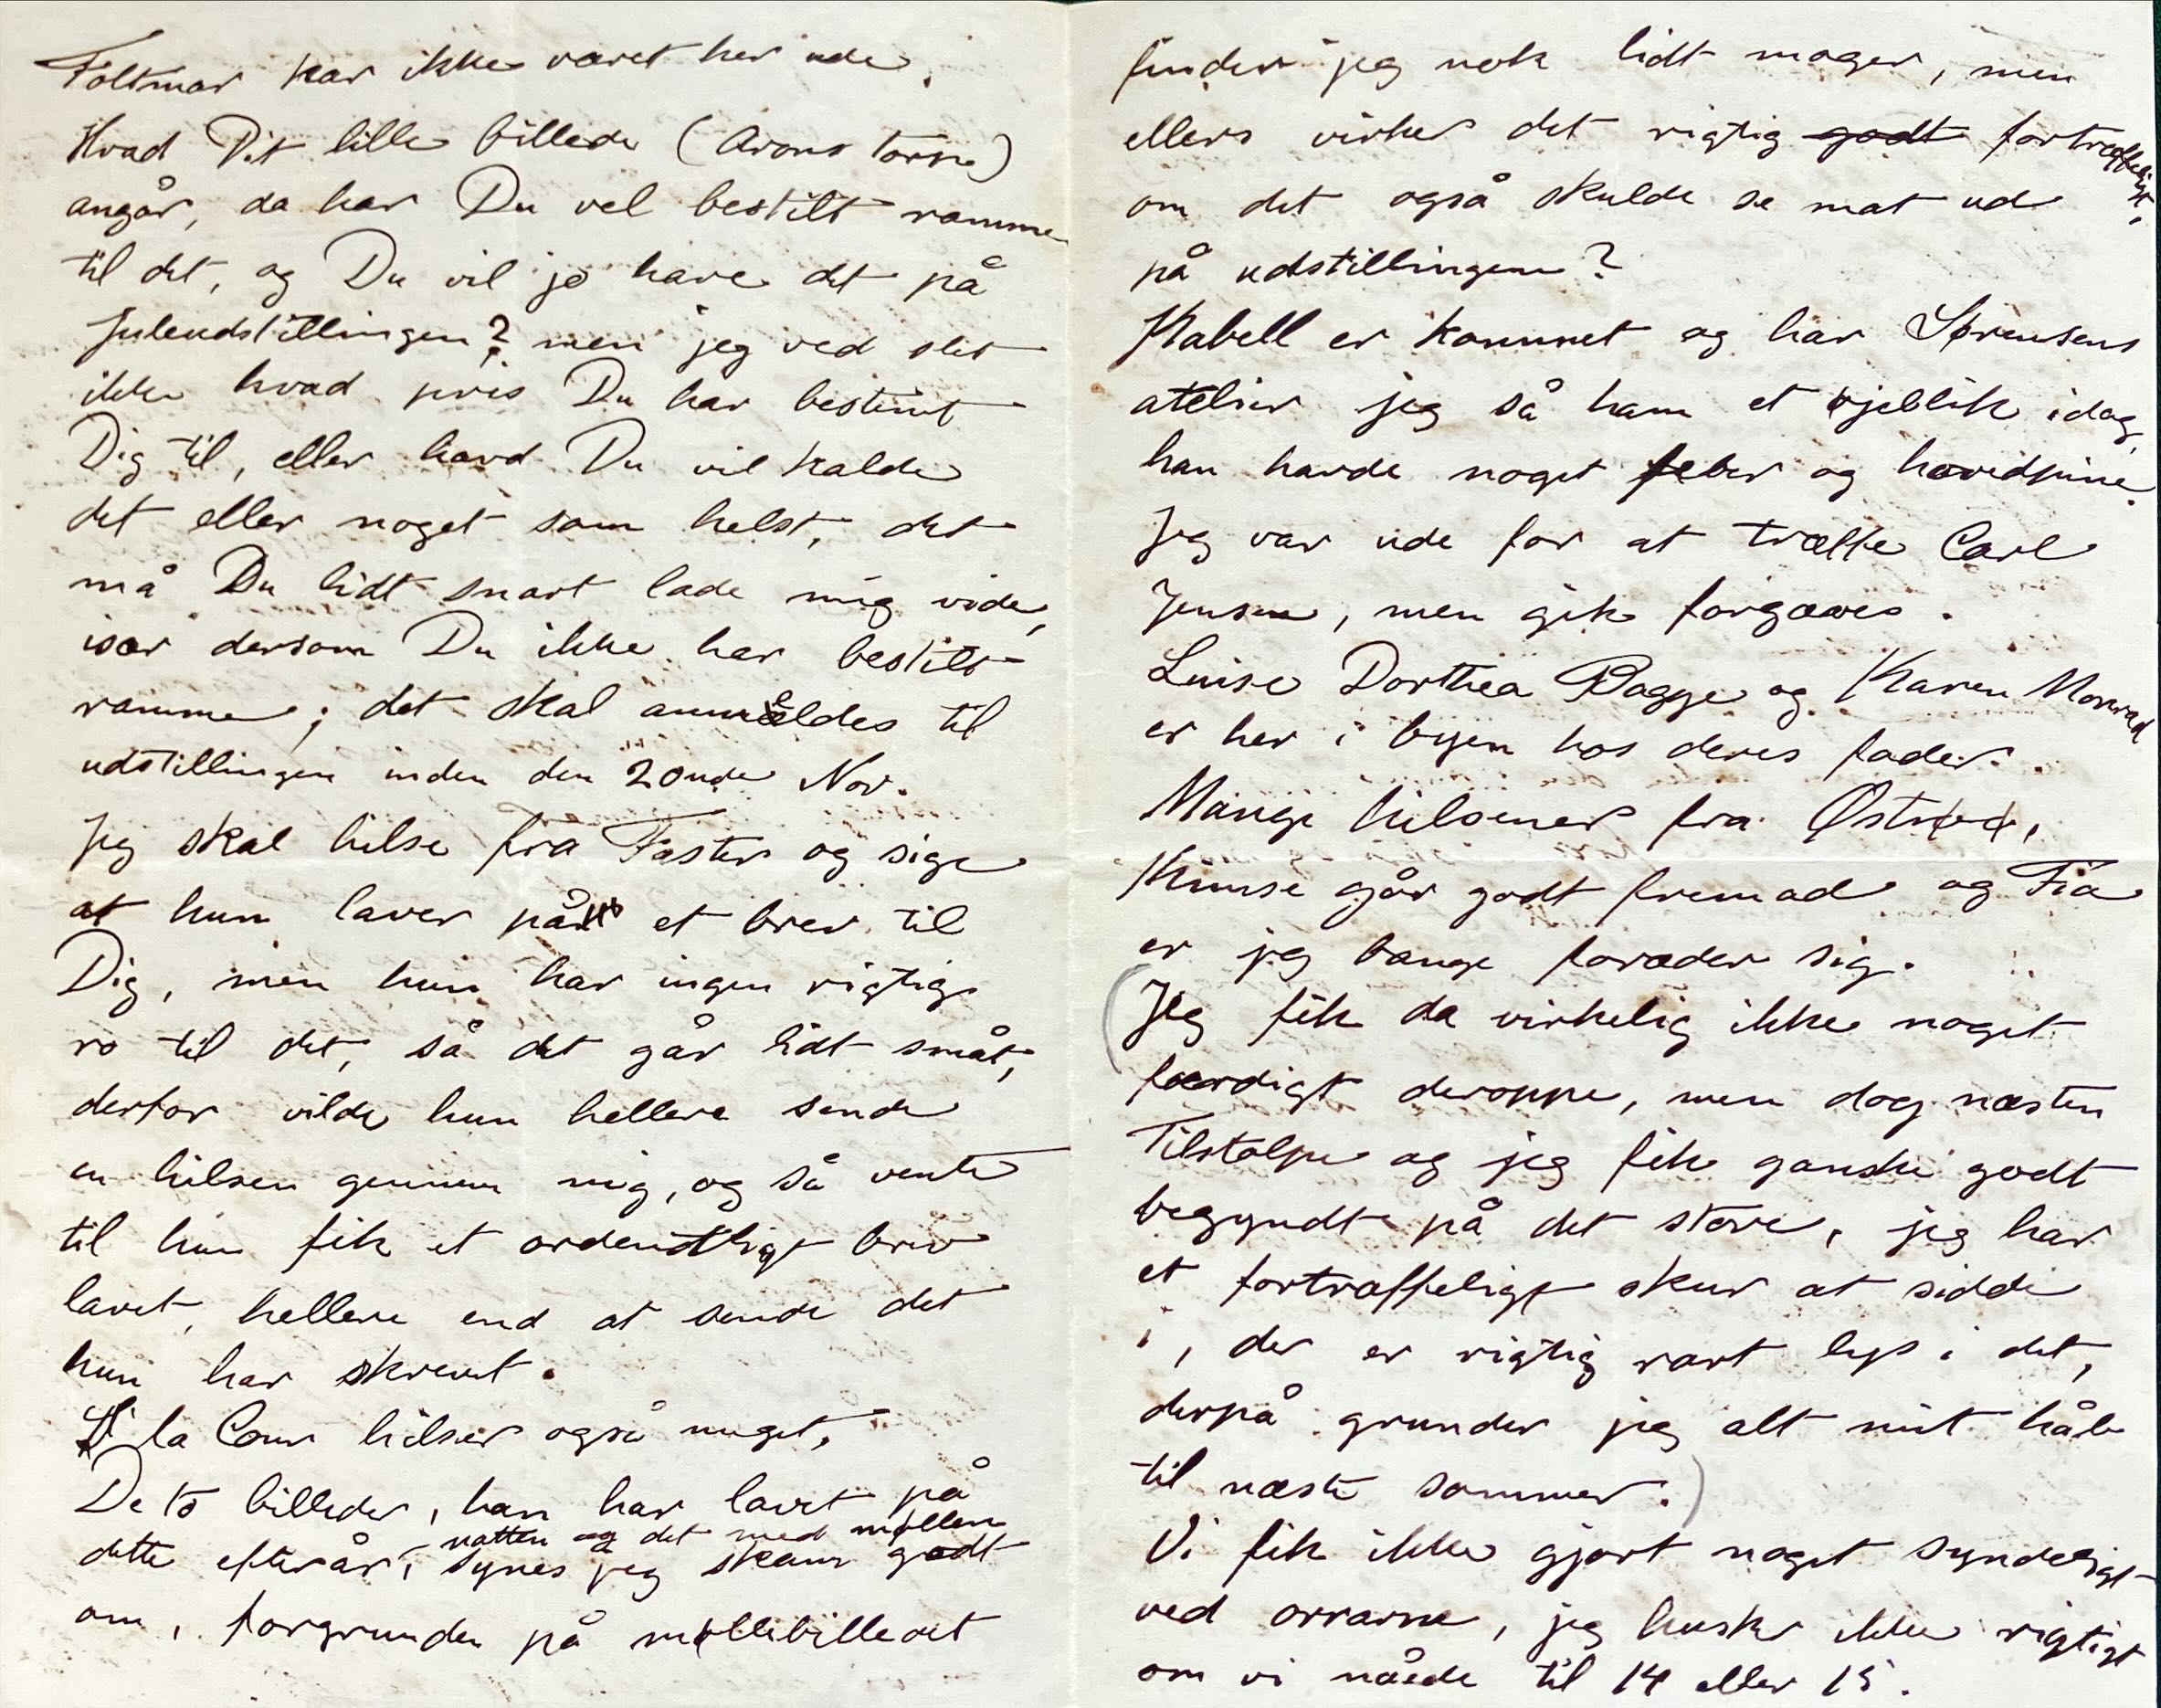 Foltmar har ikke været her ude.
Hvad Dit lille billede (Arons torsø)
angår, da har Du vel bestilt ramme
til det, og Du vil jo have det på
Juleudstillingen? men jeg ved slet
ikke hvad pris Du har bestemt
Dig til, eller havd Du vil kalde
det eller noget som helst, det
må Du lidt snart lade mig vide,
især dersom Du ikke har bestilt
ramme; det skal anmældes til
udstillingen inden den 20nde Nov.
Jeg skal hilse fra Faster og sige
at hun laver på et brev til
Dig, men hun har ingen rigtig
ro til det, så det går lidt småt,
derfor vilde hun hellere sende
en hilsen gennem mig, og så vente
til hun fik et ordentligt brev
lavet, hellere end at sende det
hun har skrevet.
la Cour hilser også meget,
De to billeder, han har lavet på
dette efterår, natten og det med møllen
synes jeg skam godt
om, forgrunden på møllebilledet
finder jeg nok lidt mager, men
ellers virker det rigtig godt fortræffeligt,
om det også skulde se mat ud
på udstillingen?
Kabell er kommet og har Sørensens
atelier jeg så ham et øjeblik idag,
han havde noget feber og hovedpine.
Jeg var ude for at træffe Carl
Jensen, men gik forgæves.
Luise Dorthea Bagge og Karen Monrad
er her i byen hos deres fader.
Mange hilsener fra Østrød,
Kimse går godt fremad og Fia
er jeg bange foræder sig.
(Jeg fik da virkelig ikke noget
færdigt deroppe, men dog næsten
Tilstolpe og jeg fik ganske godt
begyndt på det store, jeg har
et fortræffeligt skur at sidde
i, der er rigtig rart lys i det,
derpå grunder jeg alt mit håb
til næste sommer.)
Vi fik ikke gjort noget synderligt
ved orrarne, jeg husker ikke rigtigt
om vi nåede til 14 eller 15.